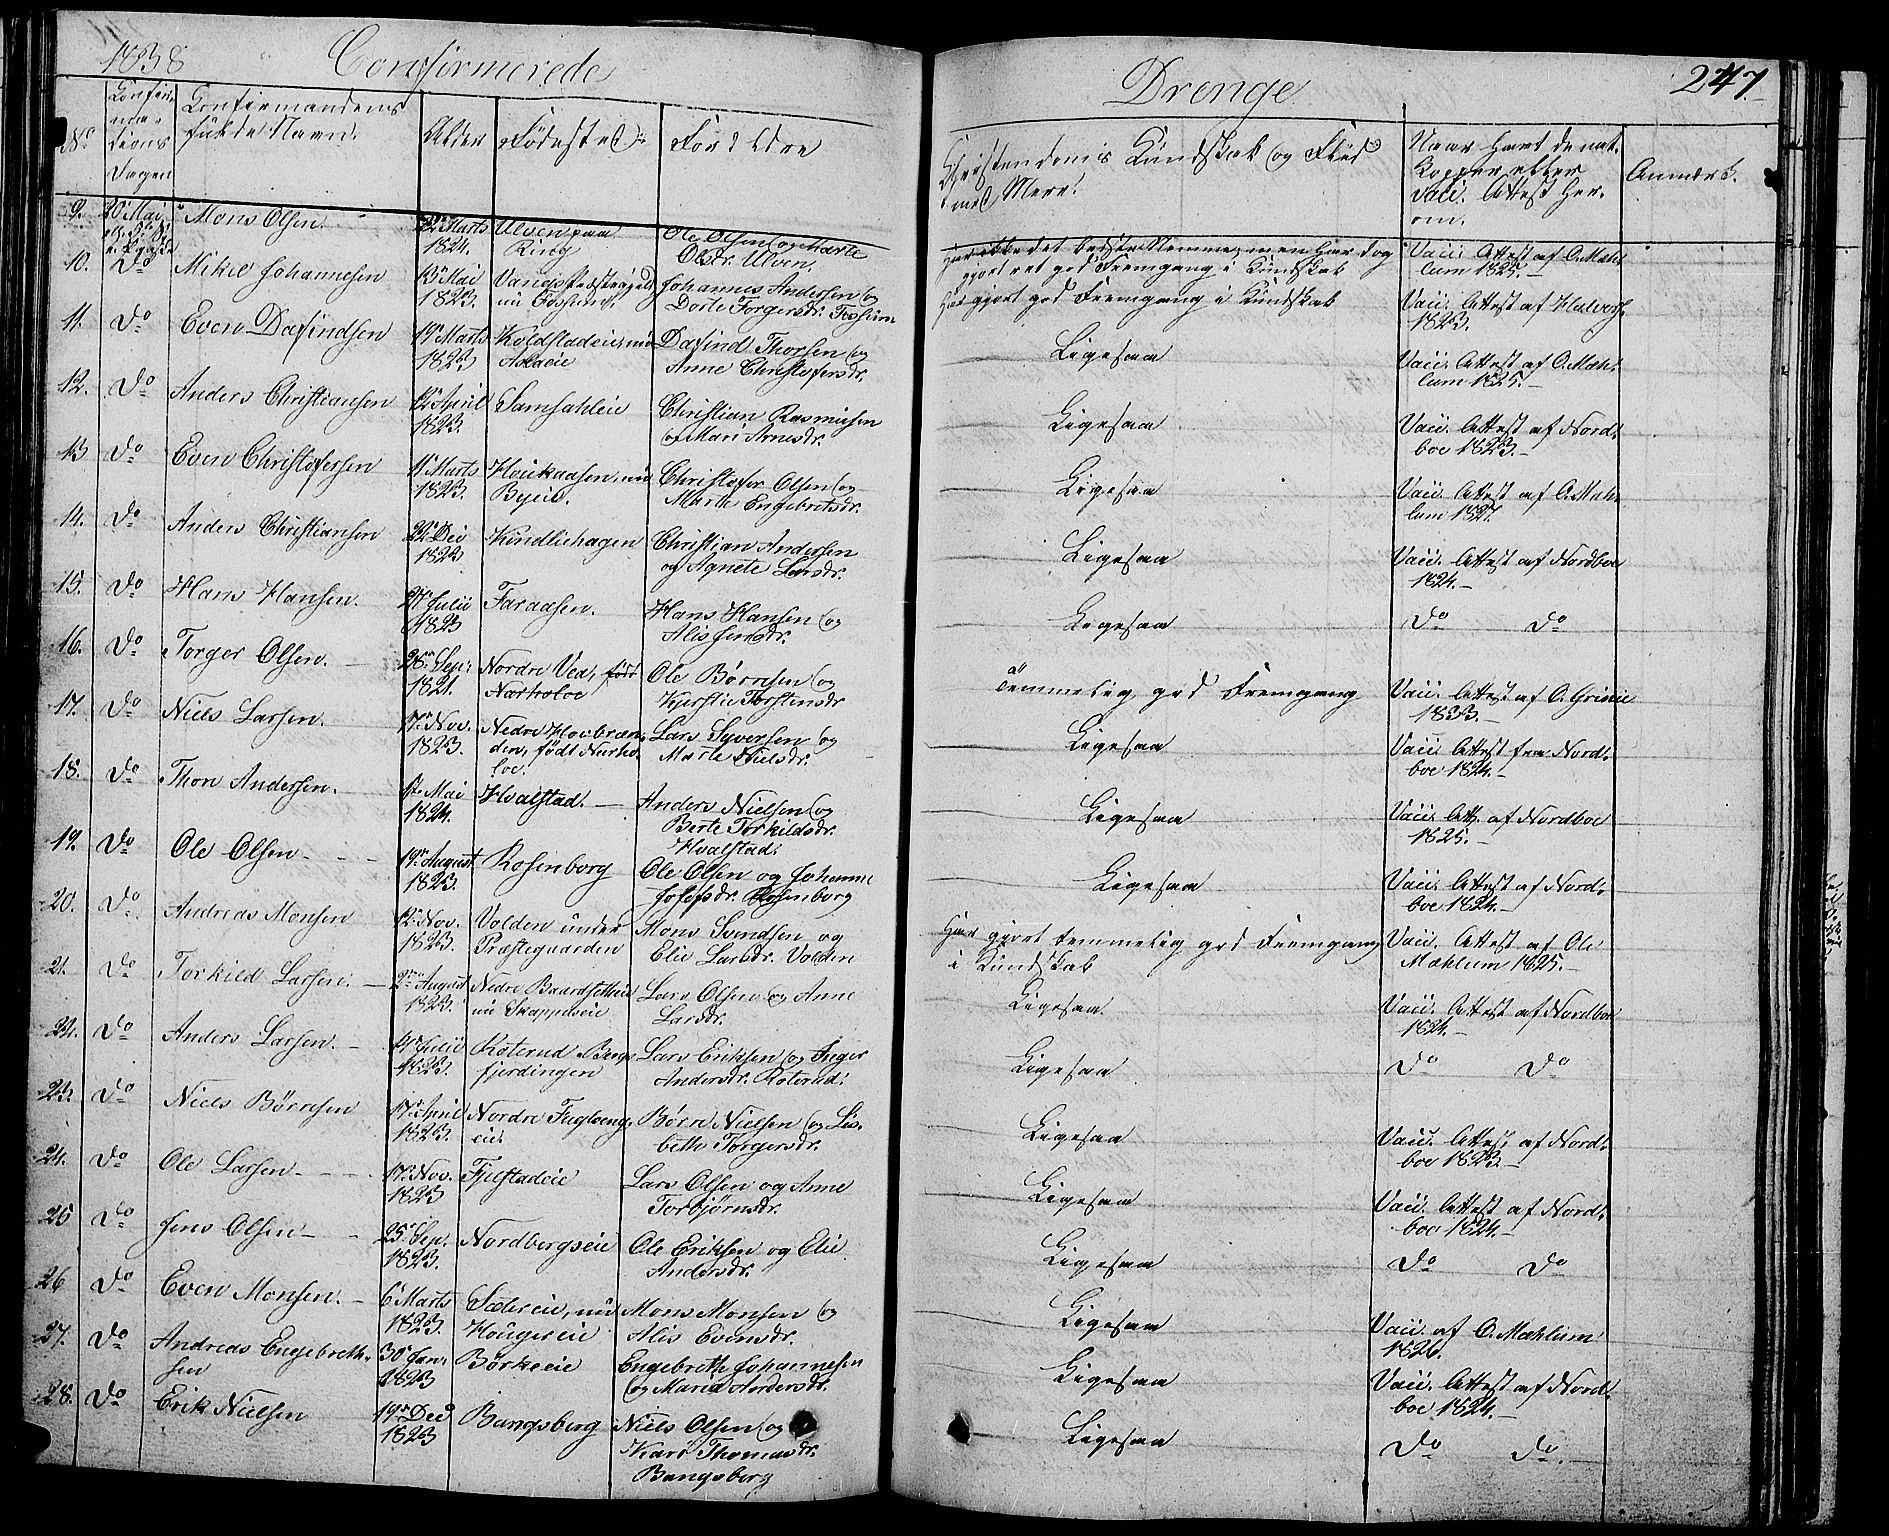 1838 Confirmerede Drenge. 247.
No
Confirmations Dagen
Confirmandens fulde Navn.
Alder
Fødested
Forældre
Christendoms Kundskab og Flid med Mere.
Naar havt de nat. Kopper eller Vacc. Attest herom.
Anmærk.
9. 20 Mai Mons Olsen. Marts 1824. Ulven paa Ring Ole Olsen og Marte Olsdr. Ulven. Har ikke det bedste Nemme, men har dog gjort ret god Fremgang i Kundskab Vacc. Attest af O. Mæhlum 1825.
10. Do Mikel Johannesen 13 Mai 1823. Johannes Andersen og Dorte Torgersdr. Fossum Har gjort god Fremgang i Kundskab Vacc. Attest af Halvorsen 1823.
11. Do Even Dafindsen 19 Marts 1823 Koldstadeie, nu Aslaeie Dafind Thorsen og Anne Christofersdr. Ligesaa Vacc. Attest af O. Mæhlum 1825.
12. Do Anders Christiansen 12 April 1823. Samsahleie Christian Rasmusen og Mari Arnesdr. Ligesaa Vacc. Attest af Nordboe 1823.
13 Do Even Christofersen 11 Marts 1823. Houkaasen, nu Byeie. Christofer Olsen og Marte Engebretsdr. Ligesaa Vacc. Attest af O. Mæhlum 1827.
14. Do Anders Christiansen 22 Dec 1823 Kindliehagen Christian Andersen og Agnete Larsdr. Ligesaa Vacc. Attest af Nordboe 1824.
15. Do Hans Hansen. 27 Julii 1823 Faraasen. Hans Hansen og Alis Jensdr. Ligesaa Do Do
16. Do Torger Olsen. 28 Sep: 1821. Nordre Ved, født Nærholoe Ole Børresen og Kjerstie Torstensdr Temmelig god Fremgang Vacc. Attest af O. Grinie 1833.
17. Do Niels Larsen. 17 Nov. 1823. Nedre Hoibrænden, født Nærholoe. Lars Syversen og Marte Nielsdr. Ligesaa Vacc. Attest fra Nordboe 1824.
18. Do Thor Andersen. Mai 1824. Hvalstad. Anders Nielsen og Berte Torkildsdr. Hvalstad. Ligesaa Vacc. Att. af Nordboe 1825.
19. Do Ole Olsen 19 August 1823. Rosenborg Ole Olsen og Johanne Josefsdr. Rosenborg Ligesaa Vacc. Attest af Nordboe 1824.
20. Do Andreas Monsen 12 Nov. 1823. Volden under Præstegaarden Mons Svendsen og Elie Larsdr. Volden Har gjort temmelig god Fremgang i Kundskab Vacc. Attest af Ole Mæhlum 1825.
21. Do Torkild Larsen. 2 August 1823. Nedre Baardsetheie nu Skappelseie Lars Olsen og Anne Larsdr. Ligesaa. Vacc. Attest af Nordboe 1824.
22. Do Anders Larsen. Julii 1823. Koterud i Bergsfjerdingen Lars Eriksen og Inger Andersdr. Koterud. Ligesaa Do Do
23. Do Niels Børresen 17 April 1823. Nordre Fuglsengeie. Børre Nielsen og Lisbeth Torgersdr. Ligesaa Vacc. Attest af Nordboe 1823.
24. Do Ole Larsen 17 Nov. 1823 Fjelstadeie Lars Olsen og Anne Torbjørnsdr. Ligesaa Vacc. Attest af Nordboe 1824.
25 Do Jens Olsen 25 Sep. 1823. Nordbergseie Ole Eriksen og Elie Andersdr. Ligesaa Do Do
26 Do Even Monsen. 6 Marts 1823. Sætereie, nu Hougereie Mons Monsen og Alis Evensdr. Ligesaa Vacc. af O. Mæhlum 1826.
27. Do Andreas Engebrethsen 30 Jan. 1823 Børkeeie Engebreth Johannesen og Maria Andersdr. Ligesaa Vacc. Attest af Nordboe 1824.
28. Do Erik Nielsen 19 Dec 1823 Bangsberg Niels Olsen og Kari Thomasdr. Bangsberg Ligesaa Do Do.